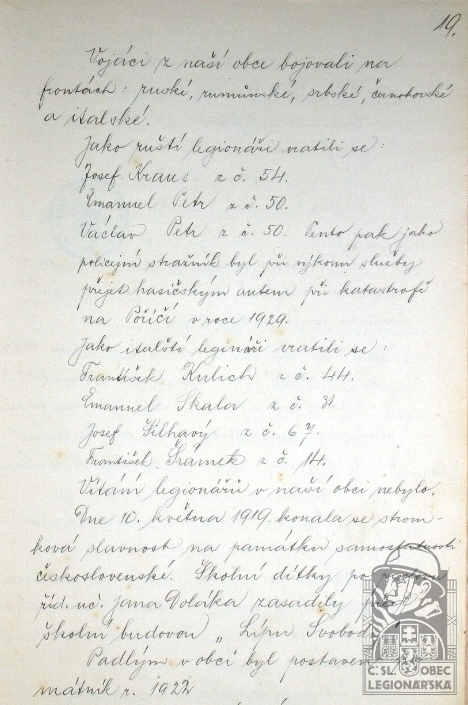 19.
Vojáci z naší obce bojovali na
frontách: ruské, rumunské, srbské, černohorské
a italské.
Jako ruští legionáři vrátili se:
Josef Kraus z č. 54.
Emanuel Petr z č. 50.
Václav Petr z č. 50. Tento pak jako
policejní strážník byl při výkonu služby
přejet hasičským autem při katastrofě
na Poříčí v roce 1929.
Jako italští legináři vrátili se:
František Kulich z č. 44.
Emanuel Skala z č. 31.
Josef Šilhavý z č. 67.
František Šrámek z č. 14.
Vítání legionářů v naší obci nebylo.
Dne 10. května 1919 konala se strom-
ková slavnost na památku samostatnosti
československé. Školní dítky po
říd. uč. Jana Doležka zasadily před
školní budovou „Lípu Svobod
Padlým v obci byl postaven
mátník r. 1922
Č.SL. OBEC
LEGIONÁŘSKÁ